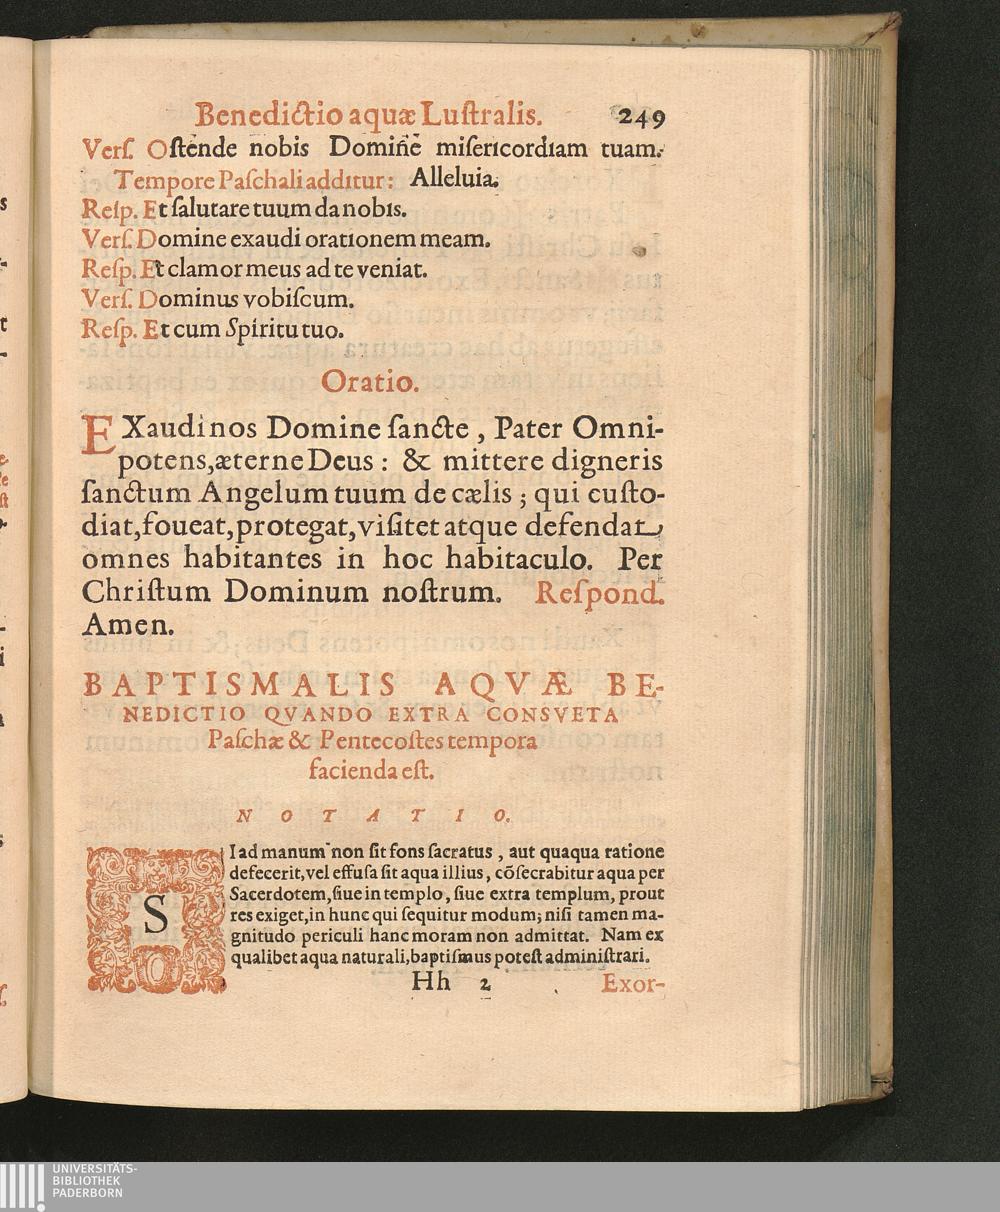 Benedictio aquæ Luſtralis. 249
Verſ. Oſtende nobis Domine miſericordiam tuam.
Tempore Paſchali additur: Alleluia.
Reſp. Et ſalutare tuum da nobis.
Verſ. Domine exaudi orationem meam.
Reſp. Et clamor meus ad te veniat.
Verſ. Dominus vobiſcum.
Reſp. Et cum Spiritu tuo.
Oratio.
EXaudi nos Domine ſancte, Pater Omni-
potens, æterne Deus: & mittere digneris
ſanctum Angelum tuum de cælis; qui cuſto-
diat, foueat, protegat, viſitet atque defendat
omnes habitantes in hoc habitaculo. Per
Chriſtum Dominum noſtrum. Reſpond.
Amen.
BAPTISMALIS AQVÆ BE-
NEDICTIO QVANDO EXTRA CONSVETA
Paſchæ & Pentecoſtes tempora
facienda eſt.
NOTATIO.
SI ad manum non ſit fons ſacratus, aut quaqua ratione
defecerit, vel effuſa ſit aqua illius, cõſecrabitur aqua per
Sacerdotem, ſiue in templo, ſiue extra templum, prout
res exiget, in hunc qui ſequitur modum; niſi tamen ma-
gnitudo periculi hanc moram non admittat. Nam ex
qualibet aqua naturali, baptiſmus poteſt adminiſtrari.
Hh 2 Exor-
UNIVERSITÄTS-
BIBLIOTHEK
PADERBORN